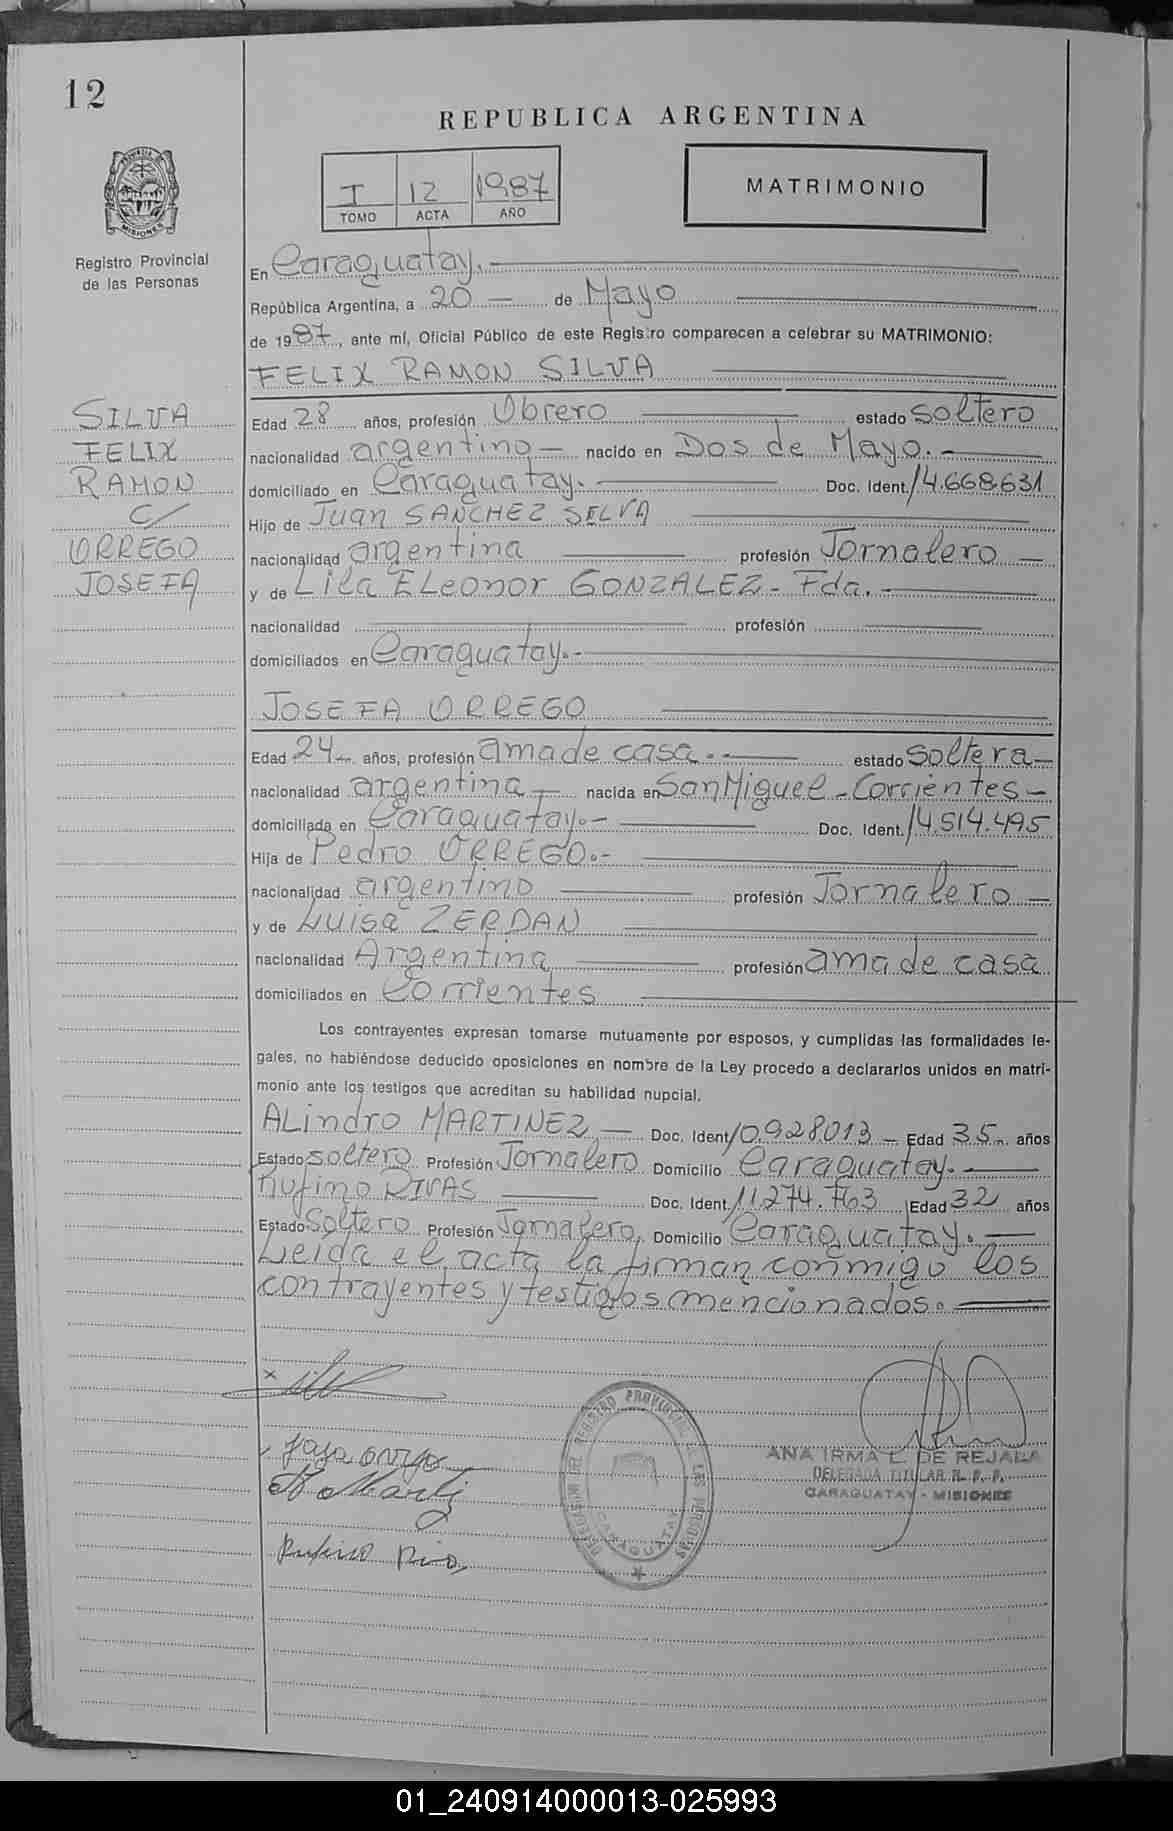 12
REPUBLICA ARGENTINA
I 12 1987
TOMO ACTA AÑO
MATRIMONIO
Registro Provincial
de las Personas
En Caraguatay.
República Argentina, a 20 de Mayo
de 1987, ante mí, Oficial Público de este Registro comparecen a celebrar su MATRIMONIO:
FELIX RAMON SILVA
SILVA
FELIX
RAMON
C/
ORREGO
JOSEFA
Edad 28 años, profesión Obrero estado soltero
nacionalidad argentino nacido en Dos de Mayo.
domiciliado en Caraguatay. Doc. Ident. 14.668.631
Hijo de Juan SANCHEZ SILVA
nacionalidad argentina profesión Jornalero
y de Lila ELeonor GONZALEZ - Fda.
nacionalidad profesión
domiciliados en Caraguatay.-
JOSEFA ORREGO
Edad 24 años, profesión ama de casa.- estado soltera
nacionalidad argentina nacida en San Miguel - Corrientes -
domiciliada en Caraguatay.- Doc. Ident. 14.514.495
Hija de Pedro ORREGO.-
nacionalidad argentino profesión Jornalero
y de Luisa ZERDAN
nacionalidad Argentina profesión ama de casa
domiciliados en Corrientes
Los contrayentes expresan tomarse mutuamente por esposos, y cumplidas las formalidades le-
gales, no habiéndose deducido oposiciones en nombre de la Ley procedo a declararlos unidos en matri-
monio ante los testigos que acreditan su habilidad nupcial.
ALindro MARTINEZ Doc. Ident. 10.928.013 Edad 35 años
Estado soltero Profesión Jornalero Domicilio Caraguatay.
Rufino RIVAS Doc. Ident. 11.274.763 Edad 32 años
Estado Soltero Profesión Jornalero, Domicilio Caraguatay.
Leida el acta la firman conmigo los
contrayentes y testigos mencionados.
REGISTRO PROVINCIAL DE LAS PERSONAS
CARAGUATAY
ANA IRMA L. DE REJALA
DELEGADA TITULAR R. P. P.
CARAGUATAY - MISIONES
01_240914000013-025993